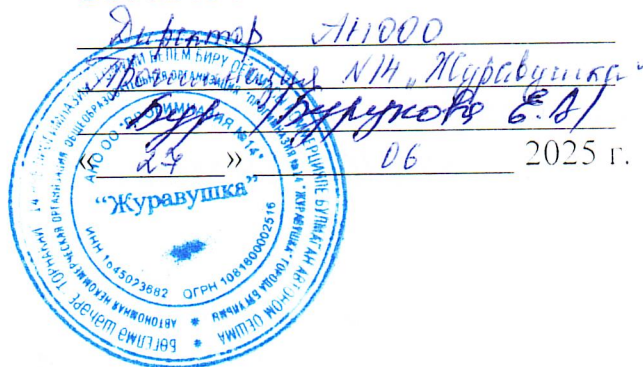 Директор АНООО
Прогимназия N14 "Журавушка"
Е.А/
« 27 » 06 2025 г.
АНО ОО "ПРОГИМНАЗИЯ №14"
"Журавушка"
ИНН 1645023682 ОГРН 1081600002516
АВТОНОМНАЯ НЕКОММЕРЧЕСКАЯ ОРГАНИЗАЦИЯ ОБЩЕОБРАЗОВАТЕЛЬНАЯ ОРГАНИЗАЦИЯ "ПРОГИМНАЗИЯ №14 "ЖУРАВУШКА" ГОРОДА БУГУЛЬМА